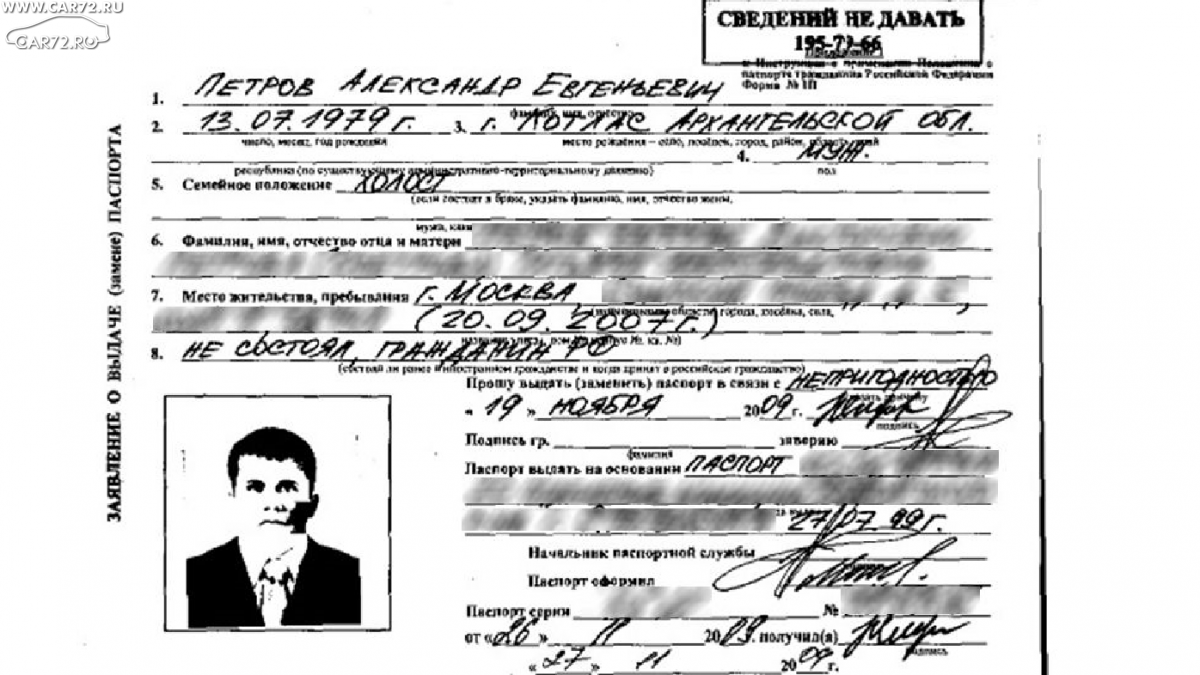 WWW.CAR72.RU
CAR72.RU
СВЕДЕНИЙ НЕ ДАВАТЬ
195-79-66
к Инструкции о применении Положения о
паспорте гражданина Российской Федерации
Форма № 1П
ЗАЯВЛЕНИЕ О ВЫДАЧЕ (замене) ПАСПОРТА
1. ПЕТРОВ АЛЕКСАНДР ЕВГЕНЬЕВИЧ
фамилия, имя, отчество
2. 13.07.1979 г. 3. г. КОТЛАС АРХАНГЕЛЬСКОЙ ОБЛ.
число, месяц, год рождения место рождения – село, посёлок, город, район, область, край
4. МУЖ.
республика (по существующему административно-территориальному делению) пол
5. Семейное положение ХОЛОСТ
(если состоит в браке, указать фамилию, имя, отчество жены,
мужа, кем
6. Фамилия, имя, отчество отца и матери
7. Место жительства, пребывания г. МОСКВА,
города, посёлка, села,
(20.09.2007г.)
8. НЕ СОСТОЯЛ, ГРАЖДАНИН РФ
(состоял ли ранее в иностранном гражданстве и когда принят в российское гражданство)
Прошу выдать (заменить) паспорт в связи с НЕПРИГОДНОСТЬЮ
указать причину
« 19 » НОЯБРЯ 2009 г.
подпись
Подпись гр. заверяю
фамилия
Паспорт выдать на основании ПАСПОРТ
27.07.99 г.
Начальник паспортной службы
Паспорт оформил
Паспорт серии №
от «26» 11 2009. получил(а)
подпись
«27» 11 2009 г.